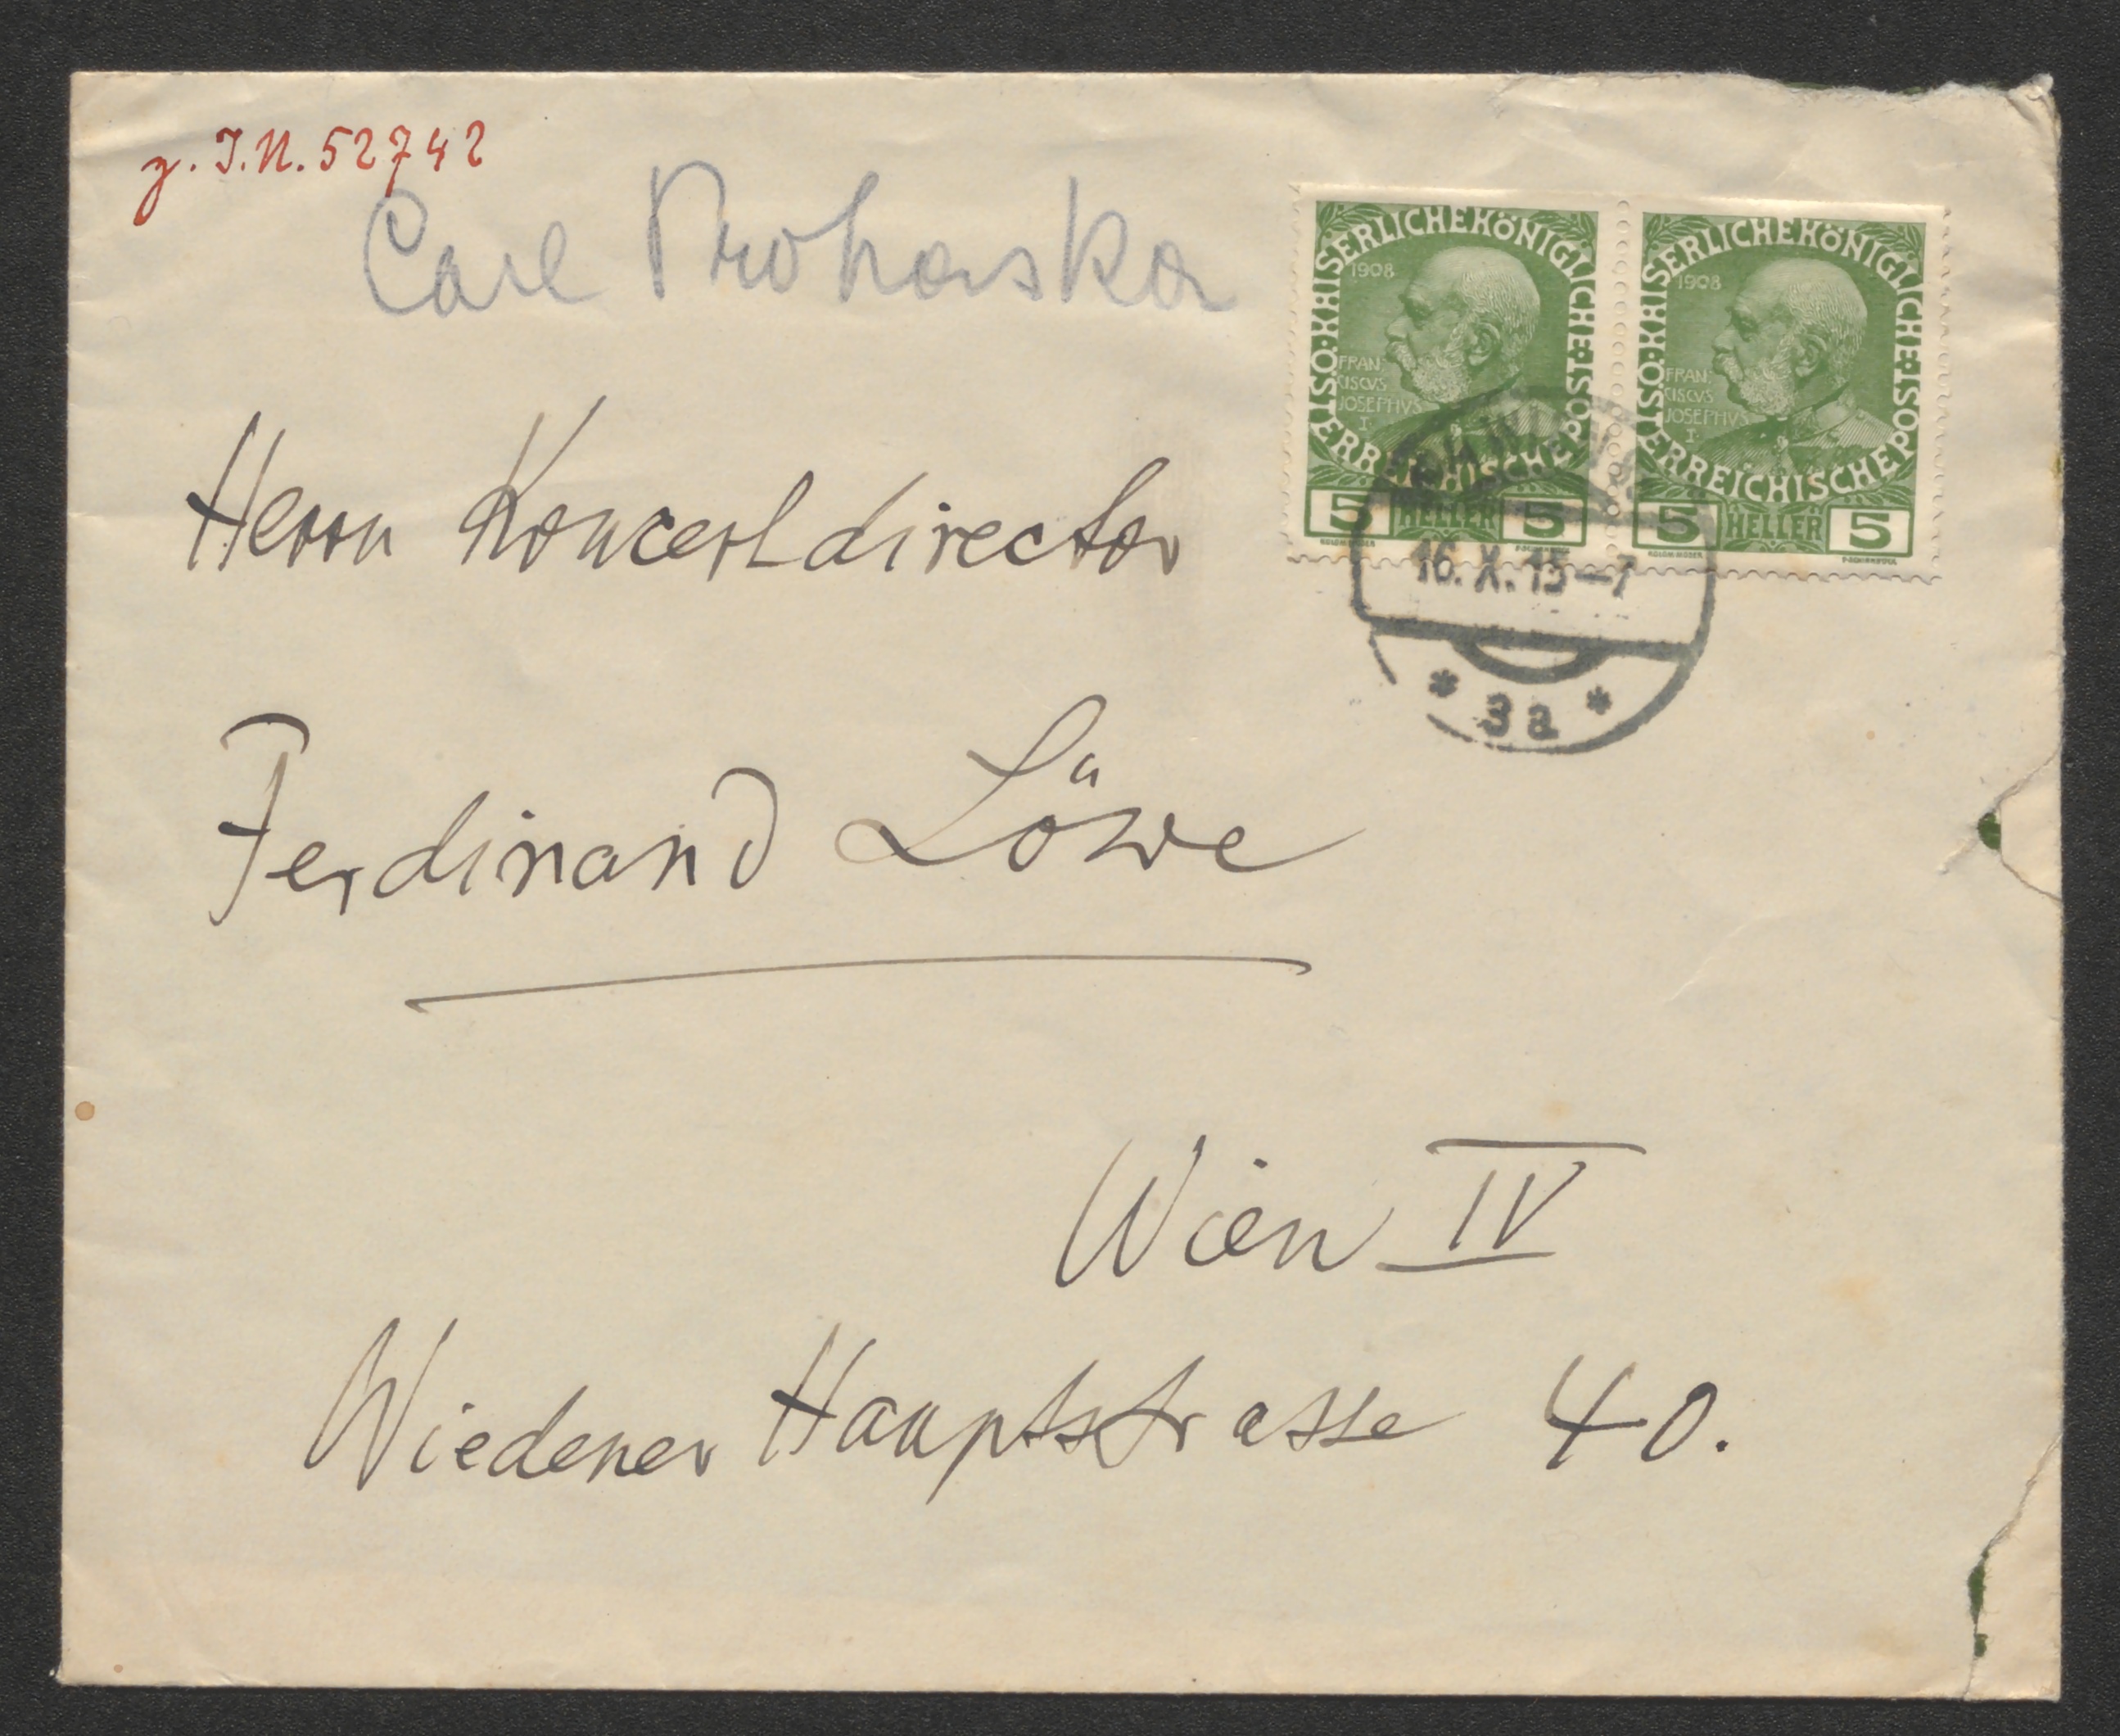 z. I.N. 52742
Carl Prohaska
KAISERLICHE KÖNIGLICHE ÖSTERREICHISCHE POST
1908
FRAN
CISCVS
JOSEPHVS
I.
5 HELLER 5
KAISERLICHE KÖNIGLICHE ÖSTERREICHISCHE POST
1908
FRAN
CISCVS
JOSEPHVS
I.
5 HELLER 5
16. X. 15 —
* 3a *
Herrn Koncertdirector
Ferdinand Löwe
Wien IV
Wiedener Hauptstrasse 40.